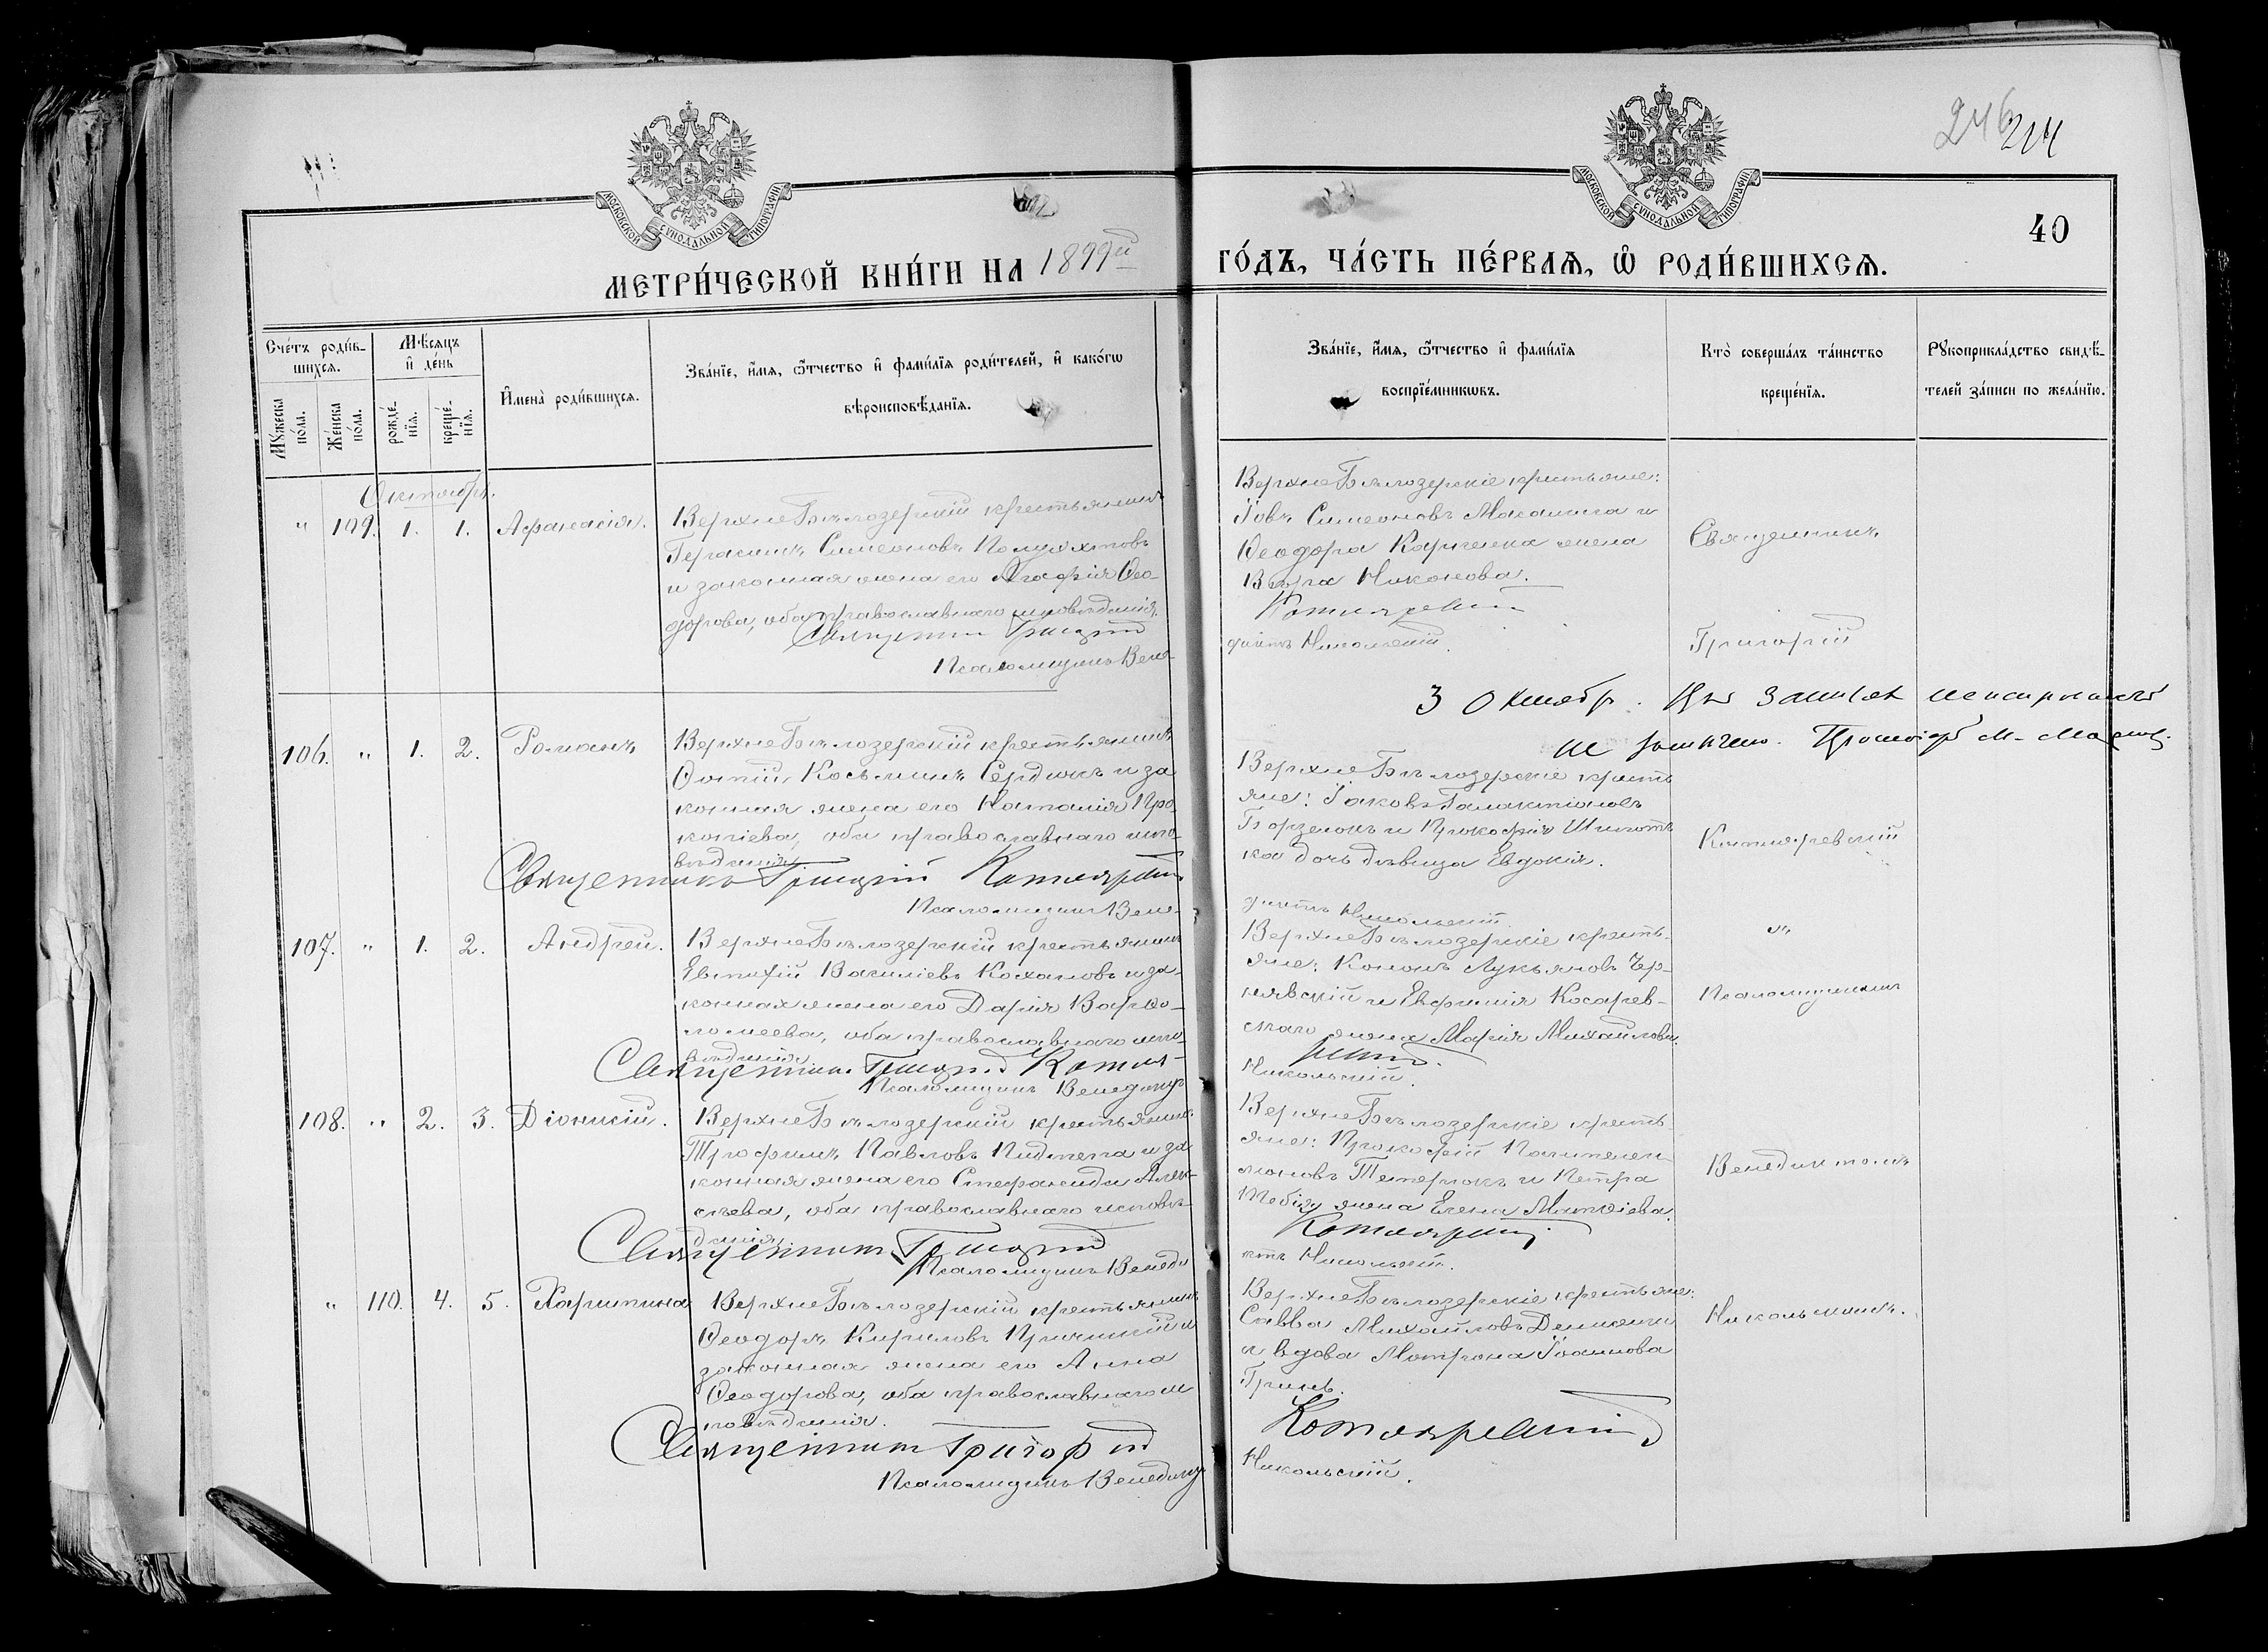 246 214
МОСКОВСКОЙ СѴНОДАЛЬНОЙ ТИПОГРАФІИ
МОСКОВСКОЙ СѴНОДАЛЬНОЙ ТИПОГРАФІИ
40
МЕТРИ́ЧЕСКОЙ КНИ́ГИ НА 1899й ГО́ДЪ, ЧА́СТЬ ПЕ́РВАѦ, Ѡ РОДИ́ВШИХСѦ.
Сче́тъ роди́в-
шихсѧ.
Мꙋ́жеска по́ла.
Же́нска по́ла.
Мѣ́сѧцъ и де́нь
рожде́-
нїѧ.
креще́-
нїѧ.
И҆мена̀ роди́вшихсѧ.
Зва́нїе, и҆́мѧ, ѻ҆́тчество и҆ фами́лїѧ роди́телей, и҆ како́гѡ
вѣроисповѣ́данїѧ.
Зва́нїе, и҆́мѧ, ѻ҆́тчество и҆ фами́лїѧ
воспрїе́мникѡвъ.
Кто̀ соверша́лъ та́инство
креще́нїѧ.
Рꙋкоприкла́дство свидѣ́-
телей за́писи по жела́нїю.
Октябрь.
" 109. 1. 1. Афанасія.
Верхне Бѣлозерскій крестьянинъ
Герасимъ Симеоновъ
и законная жена его Агафія Ѳео-
дорова, оба православнаго исповѣданія.
Священникъ Григорій
Псаломщикъ Вене-
Верхне Бѣлозерскіе крестьяне:
Іовъ Симеоновъ и
Ѳеодора жена
Вѣра Никонова.
Котляревскій
диктъ Никольскій.
Священникъ
Григорій
3 Октябр.
106. " 1. 2. Романъ
Верхне Бѣлозерскій крестьянинъ
Фотій Косьминъ Сердюкъ и за
конная жена его Наталія Про
копіева, оба православнаго испо-
вѣданія.
Священникъ Григорій Котляревскій
Псаломщикъ Вене-
Верхне Бѣлозерскіе кресть
яне: Іаковъ Галактіоновъ
и Прокофія
ка дочь дѣвица Евдокія.
диктъ Никольскій.
Котляревскій
107. " 1. 2. Андрей.
Верхне Бѣлозерскій крестьянинъ
Евтихій Василіевъ Кохановъ и за-
конная жена его Дарія Варѳо-
ломеева, оба православнаго испо-
вѣданія.
Священникъ Григорій Котля-
Псаломщикъ Венедикт
Верхне Бѣлозерскіе кресть-
яне: Кононъ Лукьяновъ Чер-
нявскій и Евфимія Косарев-
скаго жена Марія Михайлова.
ревскій.
Никольскій.
съ
Псаломщикомъ
108. " 2. 3. Діонисій.
Верхне Бѣлозерскій крестьянинъ
Трофимъ Павловъ и за
конная жена его Стефанида Алек-
сѣева, оба православнаго исповѣ-
данія.
Священникъ Григорій
Псаломщикъ Венеди
Верхне Бѣлозерскіе кресть
яне: Прокофій Пантелей
моновъ Тетерюкъ и Петра
жена Елена Матѳіева.
Котляревскій
ктъ Никольскій.
Венедиктомъ
" 110. 4. 5. Харитина
Верхне Бѣлозерскій крестьянинъ
Ѳеодоръ Кириловъ и
законная жена его Анна
Ѳеодорова, оба православнаго ис
повѣданія.
Священникъ Григорій
Псаломщикъ Венедикт
Верхне Бѣлозерскіе крестьяне:
Савва Михайловъ
и вдова Матрона Іоаннова
Гринь.
Котляревскій
Никольскій.
Никольскимъ.